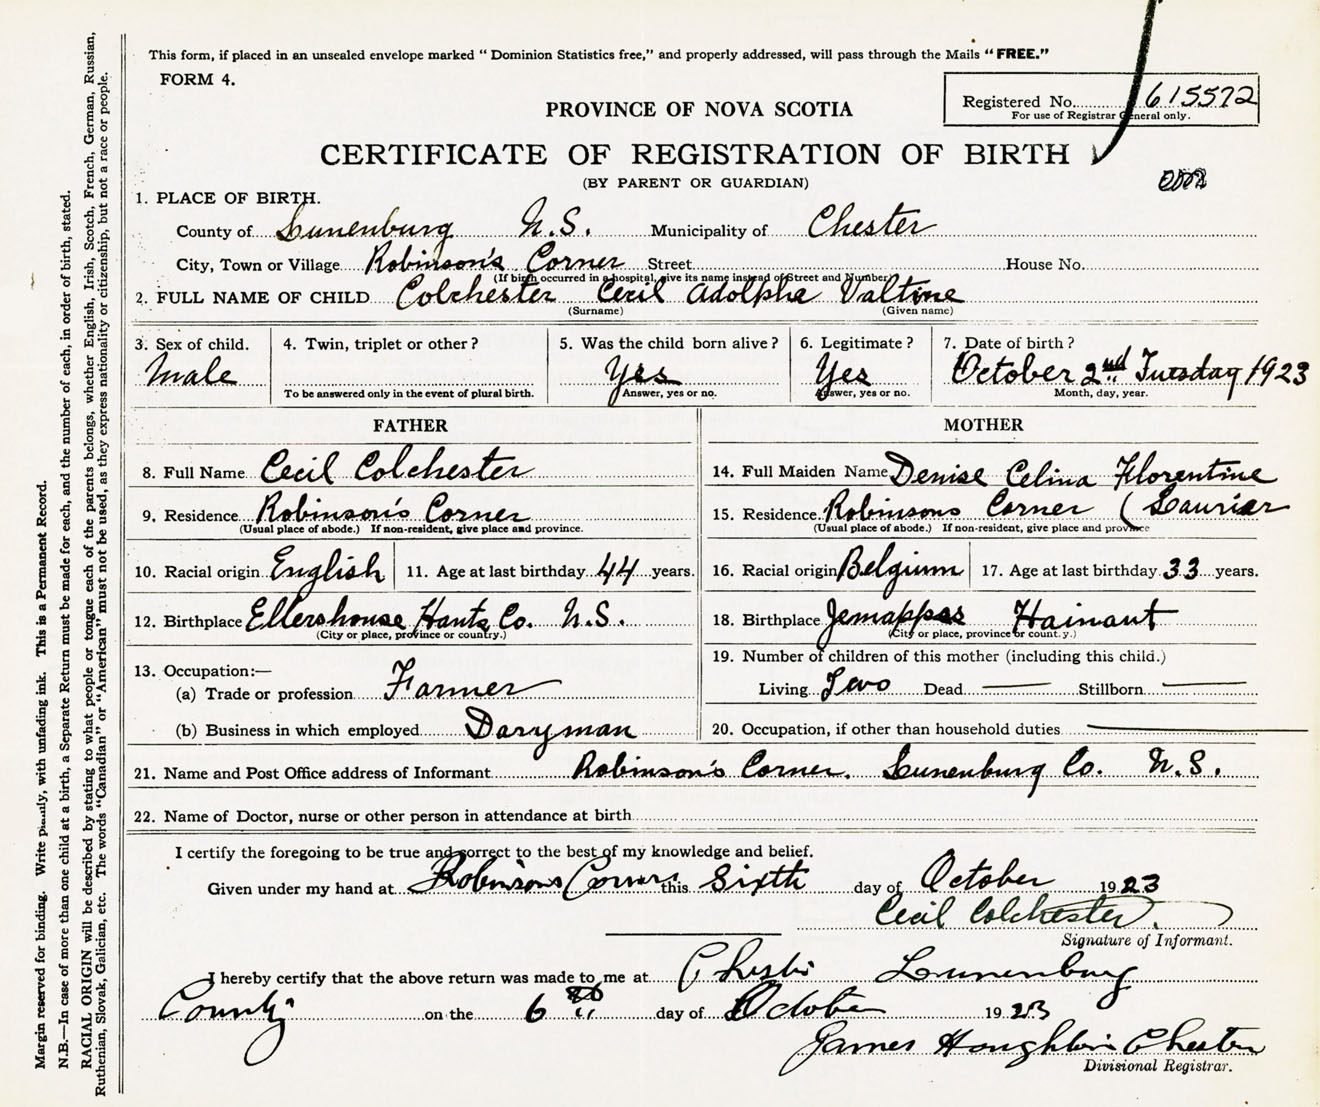 This form, if placed in an unsealed envelope marked “ Dominion Statistics free,” and properly addressed, will pass through the Mails “ FREE.”
FORM 4.
Registered No. 615572
For use of Registrar General only.
PROVINCE OF NOVA SCOTIA
CERTIFICATE OF REGISTRATION OF BIRTH
(BY PARENT OR GUARDIAN)
1. PLACE OF BIRTH.
County of Lunenburg N.S. Municipality of Chester
City, Town or Village Robinson's Corner Street House No.
(If birth occurred in a hospital, give its name instead of Street and Number)
2. FULL NAME OF CHILD Colchester Cecil Adolphe Valtine
(Surname) (Given name)
3. Sex of child. 4. Twin, triplet or other? 5. Was the child born alive? 6. Legitimate? 7. Date of birth?
Male Yes Yes October 2nd Tuesday 1923
To be answered only in the event of plural birth. Answer, yes or no. Answer, yes or no. Month, day, year.
FATHER
8. Full Name Cecil Colchester
9. Residence Robinson's Corner
(Usual place of abode.) If non-resident, give place and province.
10. Racial origin English 11. Age at last birthday 44 years.
12. Birthplace Ellershouse Hants Co. N.S.
(City or place, province or country.)
13. Occupation:—
(a) Trade or profession Farmer
(b) Business in which employed Daryman
MOTHER
14. Full Maiden Name Denise Celina Florentine
15. Residence Robinsons Corner (Laurier
(Usual place of abode.) If non-resident, give place and province
16. Racial origin Belgium 17. Age at last birthday 33 years.
18. Birthplace Jemappes Hainaut
(City or place, province or country.)
19. Number of children of this mother (including this child.)
Living Two Dead — Stillborn —
20. Occupation, if other than household duties
21. Name and Post Office address of Informant Robinson's Corner. Lunenburg Co. N.S.
22. Name of Doctor, nurse or other person in attendance at birth
I certify the foregoing to be true and correct to the best of my knowledge and belief.
Given under my hand at Robinsons Corner this Sixth day of October 1923
Cecil Colchester.
Signature of Informant.
I hereby certify that the above return was made to me at Chester Lunenburg
County on the 6 day of October 1923
James Houghton Chester
Divisional Registrar.
Margin reserved for binding. Write plainly, with unfading ink. This is a Permanent Record.
N.B.—In case of more than one child at a birth, a Separate Return must be made for each, and the number of each, in order of birth, stated.
RACIAL ORIGIN will be described by stating to what people or tongue each of the parents belongs, whether English, Irish, Scotch, French, German, Russian,
Ruthenian, Slovak, Galician, etc. The words “Canadian” or “American” must not be used, as they express nationality or citizenship, but not a race or people.